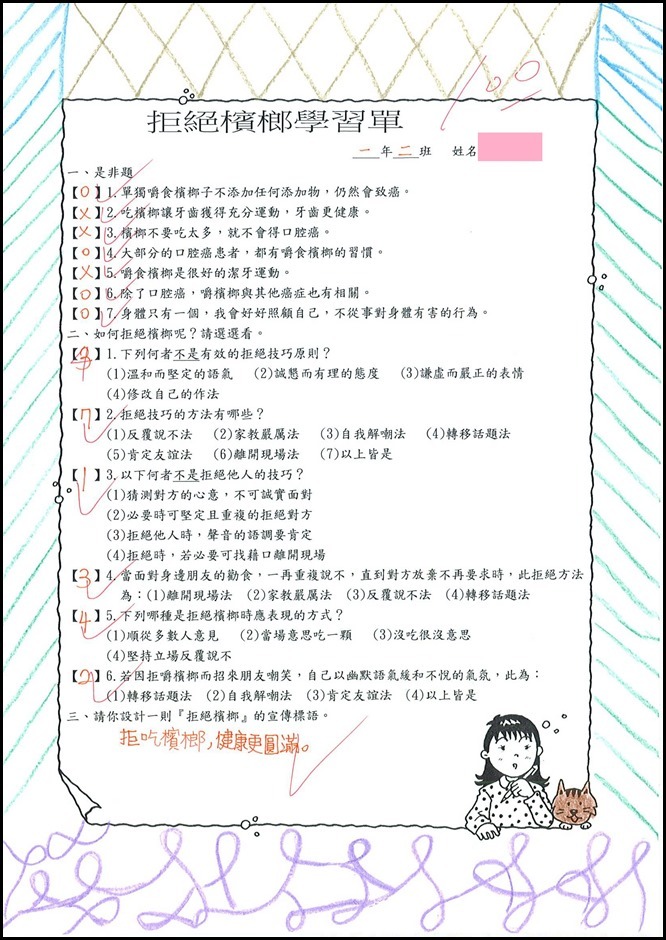 100
拒絕檳榔學習單
一年二班 姓名
一、是非題
【O】1.單獨嚼食檳榔子不添加任何添加物，仍然會致癌。
【X】2.吃檳榔讓牙齒獲得充分運動，牙齒更健康。
【X】3.檳榔不要吃太多，就不會得口腔癌。
【O】4.大部分的口腔癌患者，都有嚼食檳榔的習慣。
【X】5.嚼食檳榔是很好的潔牙運動。
【O】6.除了口腔癌，嚼檳榔與其他癌症也有相關。
【O】7.身體只有一個，我會好好照顧自己，不從事對身體有害的行為。
二、如何拒絕檳榔呢？請選選看。
【4】1.下列何者不是有效的拒絕技巧原則？
(1)溫和而堅定的語氣 (2)誠懇而有理的態度 (3)謙虛而嚴正的表情
(4)修改自己的作法
【7】2.拒絕技巧的方法有哪些？
(1)反覆說不法 (2)家教嚴厲法 (3)自我解嘲法 (4)轉移話題法
(5)肯定友誼法 (6)離開現場法 (7)以上皆是
【1】3.以下何者不是拒絕他人的技巧？
(1)猜測對方的心意，不可誠實面對
(2)必要時可堅定且重複的拒絕對方
(3)拒絕他人時，聲音的語調要肯定
(4)拒絕時，若必要可找藉口離開現場
【3】4.當面對身邊朋友的勸食，一再重複說不，直到對方放棄不再要求時，此拒絕方法
為：(1)離開現場法 (2)家教嚴厲法 (3)反覆說不法 (4)轉移話題法
【4】5.下列哪種是拒絕檳榔時應表現的方式？
(1)順從多數人意見 (2)當場意思吃一顆 (3)沒吃很沒意思
(4)堅持立場反覆說不
【2】6.若因拒嚼檳榔而招來朋友嘲笑，自己以幽默語氣緩和不悅的氣氛，此為：
(1)轉移話題法 (2)自我解嘲法 (3)肯定友誼法 (4)以上皆是
三、請你設計一則『拒絕檳榔』的宣傳標語。
拒吃檳榔，健康更圓滿。